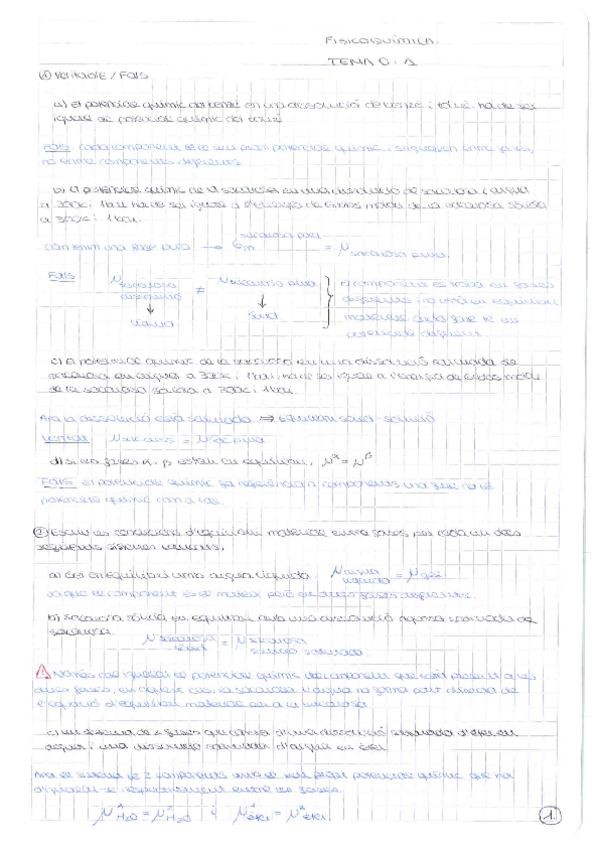 FISICOQUÍMICA.
TEMA 0.1
① Veritable / Fals
a) el potencial químic del benzè en una dissolució de benzè i toluè ha de ser
igual al potencial químic del toluè.
Fals cada component té el seu propi potencial químic,
no entre components diferents
b) el potencial químic de la sacarosa en una dissolució de sacarosa i aigua
a 300K i 1bar ha de ser igual a l'energia de Gibbs molar de la sacarosa sòlida
a 300K i 1bar.
una fase pura → Gm sacarosa pura = μ sacarosa pura.
Fals μ sacarosa dissolució ≠ μ sacarosa pura
↓ ↓
líquida sòlid
el component es troba en fases
diferents i no estan en equilibri
material cada fase té un
potencial diferent.
c) el potencial químic de la sacarosa en una dissolució saturada de
sacarosa en aigua a 300K i 1bar, ha de ser igual a l'energia de Gibbs molar
de la sacarosa sòlida a 300K i 1bar.
la dissolució està saturada ⇒ equilibri sòlid-solució
d) si les fases α i β estan en equilibri, μα = μβ
Fals el potencial químic fa referència a components una fase no té
potencial químic com a tal.
② Escriu les condicions d'equilibri material entre fases per cada un dels
següents sistemes tancats.
a) gel en equilibri amb aigua líquida μ aigua líquida = μ gel
ja que el component és el mateix però en dues fases diferents.
b) sacarosa sòlida en equilibri amb una dissolució aquosa saturada de
sacarosa.
μ sacarosa sòlida = μ sacarosa solució saturada
⚠ Només cal igualar el potencial químic del component que està present a les
dues fases, en aquest cas, la sacarosa. l'aigua no forma part directa de
l'equilibri material
c) un sistema de 2 fases que consta d'una dissolució saturada d'èter en
aigua i una dissolució saturada d'aigua en èter
el sistema té 2 components
μ¹ H₂O = μ² H₂O i μ¹ èter = μ² èter
1.